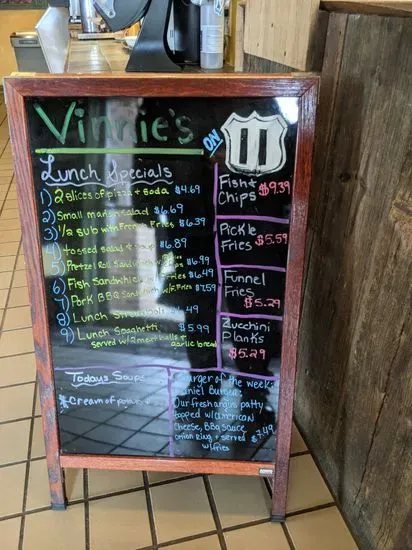 Vinnie's
ON
11
Lunch Specials
1) 2 slices of pizza + soda $4.69
2) Small man's salad $6.69
3) 1/2 sub with French Fries $6.39
4) tossed salad + soup $6.89
5) Pretzel Roll Sandwich w/ Fries $6.99
6) Fish Sandwich w/ Fries $6.49
7) Pork BBQ Sandwich w/ Fries $7.59
8) Lunch
9) Lunch Spaghetti $5.99
served w/ 2 meatballs + garlic bread
Fish + Chips $9.39
Pickle Fries $5.59
Funnel Fries $5.29
Zucchini Planks $5.29
Todays Soups
* Cream of
Burger of the week:
Burger
Our fresh angus patty
topped w/ american
Cheese, BBQ sauce
onion ring + served
w/ fries $7.49